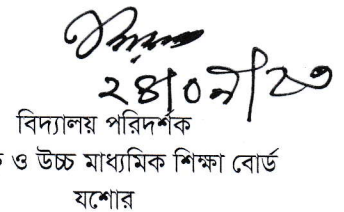 ২৪/০৯/২৩
বিদ্যালয় পরিদর্শক
ও উচ্চ মাধ্যমিক শিক্ষা বোর্ড
যশোর